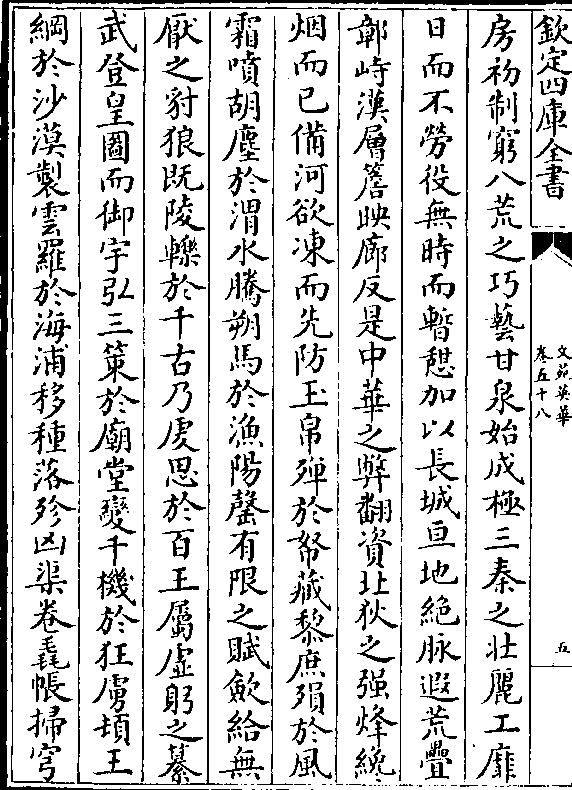 欽定四庫全書
文苑英華
卷五十八
五
房初制窮八荒之巧藝甘泉始成極三秦之壯麗工靡
日而不勞役無時而暫憇加以長城亘地絶脉遐荒疊
鄣峙漢層簷映廊反是中華之弊翻資北狄之强烽纔
烟而已備河欲凍而先防玉帛殫於帑藏黎庶殞於風
霜噴胡塵於渭水騰朔馬於漁陽罄有限之賦斂給無
厭之豺狼既陵轢於千古乃虔思於百王屬虛躬之纂
武登皇圖而御宇弘三策於廟堂變千機於狂虜頓王
綱於沙漠製雲羅於海浦移種落殄凶渠卷毳帳掃穹